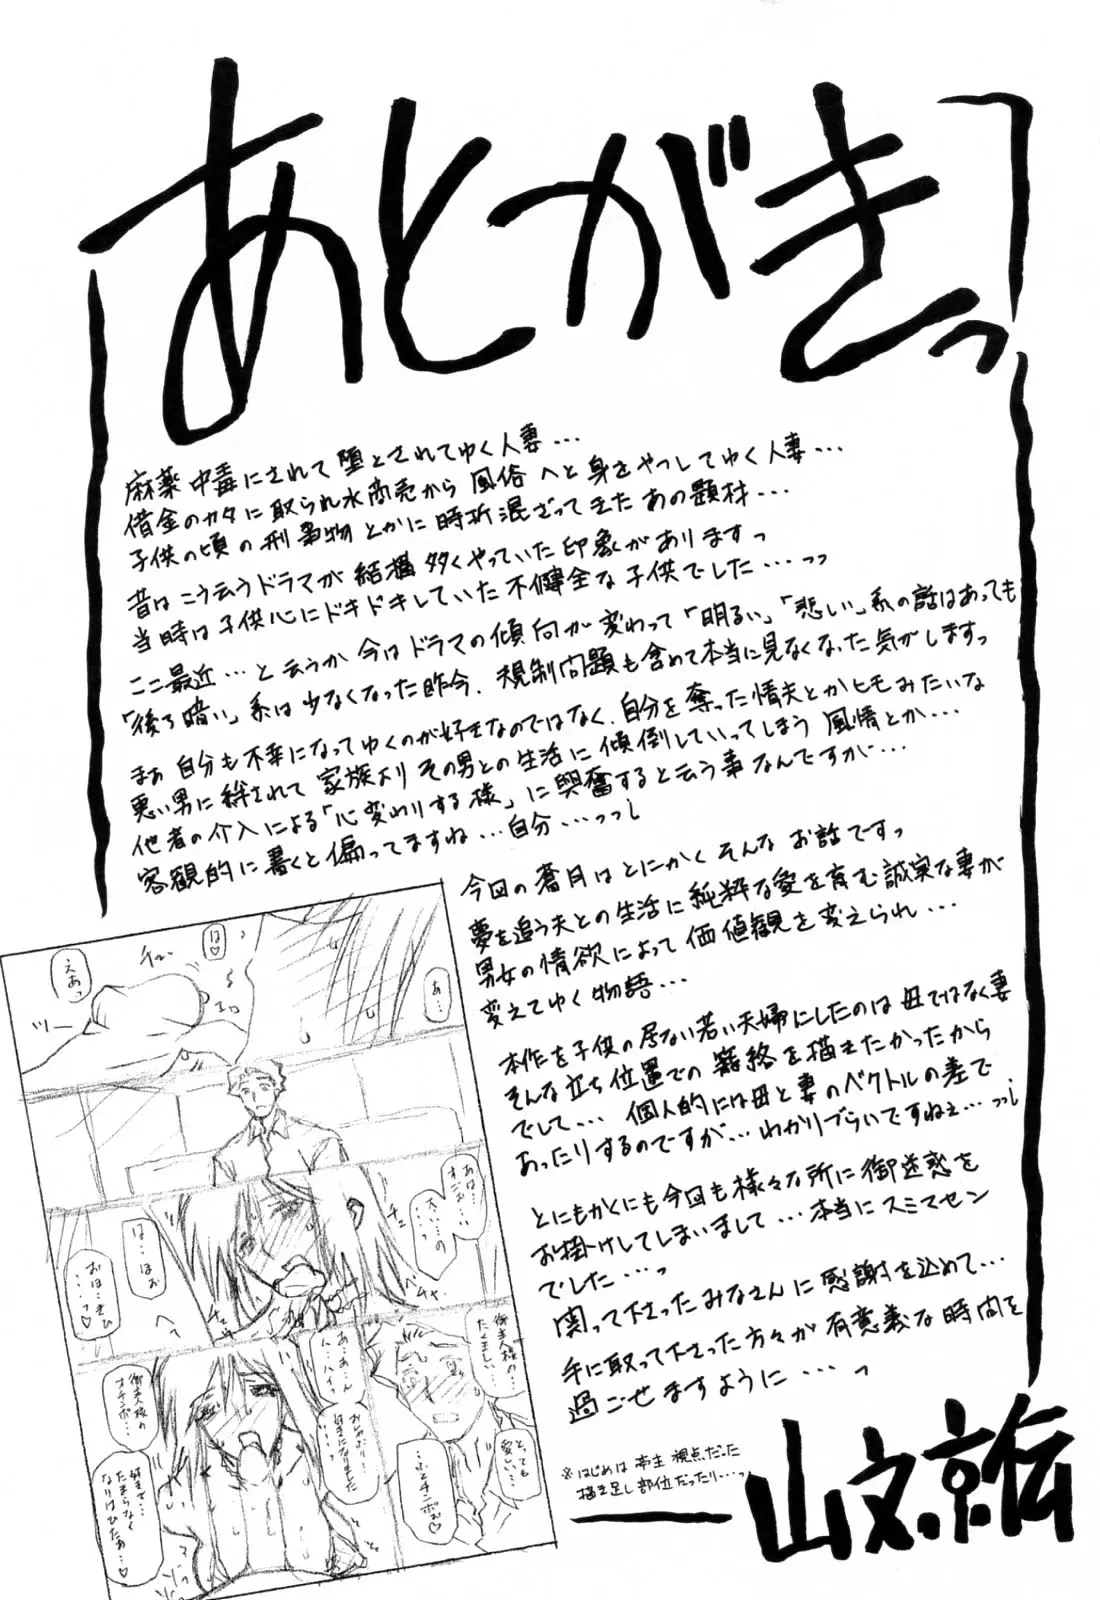 あとがきっ
麻薬中毒にされて堕とされてゆく人妻…
借金のカタに取られ水商売から風俗へと身をやつしてゆく人妻…
子供の頃の刑事物とかに時折混ざってきたあの題材…
昔はこう云うドラマが結構多くやっていた印象がありますっ
当時は子供心にドキドキしていた不健全な子供でした…っっ
ここ最近…と云うか今はドラマの傾向が変わって「明るい」「悲しい」系の話はあっても
「後ろ暗い」系は少なくなった昨今、規制問題も含めて本当に見なくなった気がしますっ
まぁ自分も不幸になってゆくのが好きなのではなく、自分を奪った情夫とかヒモみたいな
悪い男に絆されて家族よりその男との生活に傾倒していってしまう風情とか…
他者の介入による「心変わりする様」に興奮すると云う事なんですが…
客観的に書くと偏ってますね…自分…っっ
今回の蒼月はとにかくそんなお話ですっ
夢を追う夫との生活に純粋な愛を育む誠実な妻が
男女の情欲によって価値観を変えられ…
変えてゆく物語…
本作を子供の居ない若い夫婦にしたのは母ではなく妻
そんな立ち位置での寵絡を描きたかったから
でして…個人的には母と妻のベクトルの差で
あったりするのですが…わかりづらいですねぇ…っっ
とにもかくにも今回も様々な所に御迷惑を
お掛けしてしまいまして…本当にスミマセン
でした…っ
関って下さったみなさんに感謝を込めて…
手に取って下さった方々が有意義な時間を
過ごせますように…っ
※はじめは亭主視点だった
描き足し部位だったり…っ
山文京伝
は♡
チュ
えあっ
ツー
あ…
あは…
すごお…
太い…の…♡
チュ
は…はお
おは…きひ
…♡
御主人様の…
たくましい…
とっても
愛しい…
…ふとチンポぉ♡
あ…あ…ん
おしゃぶり…
好きになりました
御主人様の
オチンポ…
好きで…
たまらなく
なりけひたぁ…♡